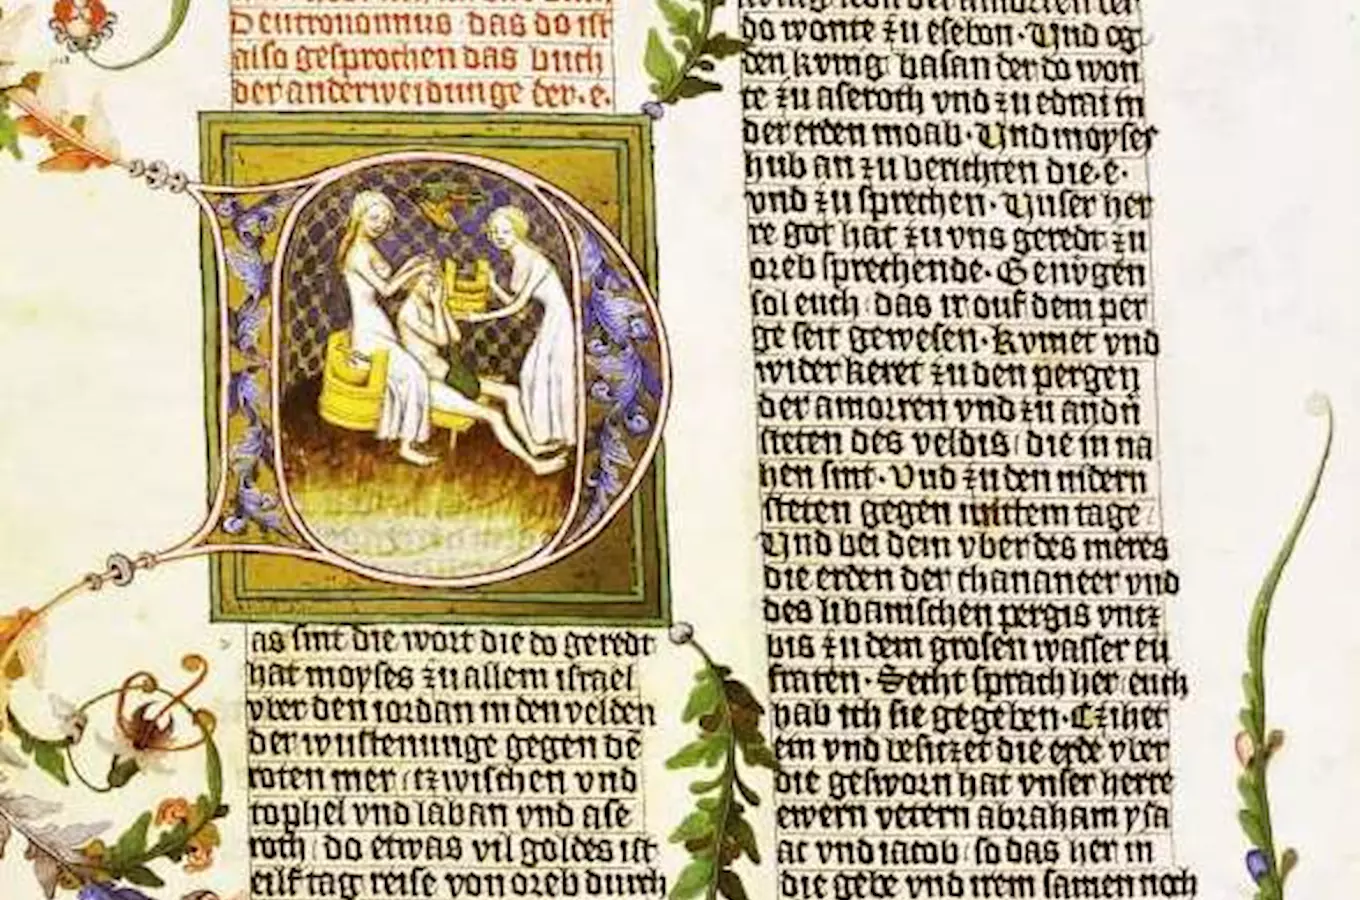 Deutronomius das do ist
also gesprochen das buch
der anderweidunge der·e·
as sint die wort die do geredt
hat moyses zu allem israel
vber den iordan in den velden
der wustenunge gegen dē
roten mer / czwischen vnd
tophel vnd laban vnd ase
roth / do etwas vil goldes ist
eilf tag reise von oreb durch
do wonte zu esebon· Vnd og
den kvnig basan der do won
te zu aseroth vnd zu edrai in
der erden moab· Vnd moyses
hub an zu berichten die·e·
vnd zu sprechen· Vnser her
re got hat zu vns geredt zu
oreb sprechende· Genvgen
sol euch / das ir ouf dem per
ge seit gewesen· Kvmet vnd
wider keret zu den pergen
der amorren vnd zu andn̄
steten des veldis / die im na
hen sint· Vnd zu den nidern
steten gegen mittem tage /
Vnd bei dem vber des meres
die erden der chananeer vnd
des libanischen pergis vntz
bis zu dem grosen wasser eu
fraten· Secht sprach her euch
hab ich sie gegeben· Czihet
ein vnd besitzet die erde vber
die gesworn hat vnser herre
ewern vetern abraham ysa
ac vnd iacob / so das her in
die gebe vnd irem samen noch